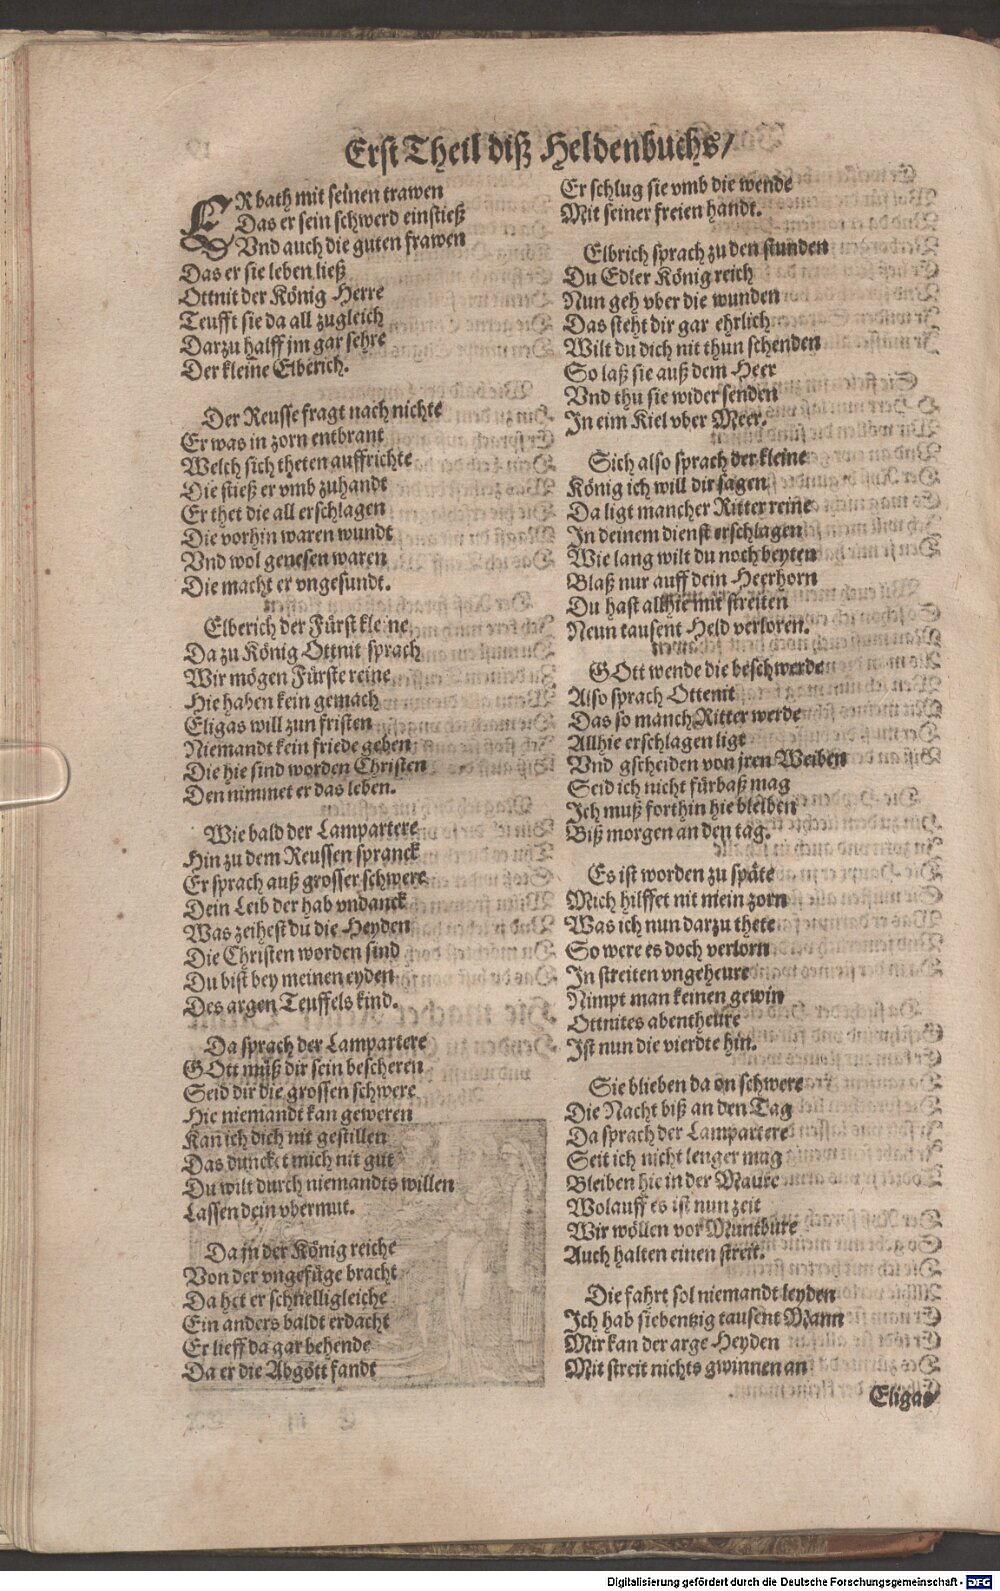 Erst Theil diß Heldenbuchs/
ER bath mit seinen trawen
Das er sein schwerd einstieß
Vnd auch die guten frawen
Das er sie leben ließ
Ottnit der König Herre
Teufft sie da all zugleich
Darzu halff jm gar sehre
Der kleine Elberich.
Der Reusse fragt nach nichte
Er was in zorn entbrant
Welch sich theten auffrichte
Die stieß er vmb zuhandt
Er thet die all erschlagen
Die vorhin waren wundt
Vnd wol genesen waren
Die macht er vngesundt.
Elberich der Fürst kleine
Da zu König Ottnit sprach
Wir mögen Fürste reine
Hie haben kein gemach
Eligas will zun fristen
Niemandt kein friede geben
Die hie sind worden Christen
Den nimmet er das leben.
Wie bald der Lampartere
Hin zu dem Reussen spranck
Er sprach auß grosser schwere
Dein Leib der hab vndanck
Was zeihest du die Heyden
Die Christen worden sind
Du bist bey meinen eyden
Des argen Teuffels kind.
Da sprach der Lampartere
GOtt muß dir sein bescheren
Seid dir die grossen schwere
Hie niemandt kan geweren
Kan ich dich nit gestillen
Das duncket mich nit gut
Du wilt durch niemandts willen
Lassen dein vbermut.
Da jn der König reiche
Von der vngefüge bracht
Da het er schnelligleiche
Ein anders baldt erdacht
Er lieff da gar behende
Da er die Abgött fandt
Er schlug sie vmb die wende
Mit seiner freien handt.
Elbrich sprach zu den stunden
Du Edler König reich
Nun geh vber die wunden
Das steht dir gar ehrlich
Wilt du dich nit thun schenden
So laß sie auß dem Heer
Vnd thu sie wider senden
In eim Kiel vber Meer.
Sich also sprach der kleine
König ich will dir sagen
Da ligt mancher Ritter reine
In deinem dienst erschlagen
Wie lang wilt du noch beyten
Blaß nur auff dein Heerhorn
Du hast allhie mit streiten
Neun tausent Held verloren.
GOtt wende die beschwerde
Also sprach Ottenit
Das so manch Ritter werde
Allhie erschlagen ligt
Vnd gscheiden von jren Weiben
Seid ich nicht fürbaß mag
Ich muß forthin hie bleiben
Biß morgen an den tag.
Es ist worden zu späte
Mich hilffet nit mein zorn
Was ich nun darzu thete
So were es doch verlorn
In streiten vngeheure
Nimpt man keinen gewin
Ottnites abentheure
Ist nun die vierdte hin.
Sie blieben da on schwere
Die Nacht biß an den Tag
Da sprach der Lampartere
Seit ich nicht lenger mag
Bleiben hie in der Maure
Wolauff es ist nun zeit
Wir wöllen vor Muntbure
Auch halten einen streit.
Die fahrt sol niemandt leyden
Ich hab siebentzig tausent Mann
Mir kan der arge Heyden
Mit streit nichts gwinnen an
Eligas
Digitalisierung gefördert durch die Deutsche Forschungsgemeinschaft - DFG